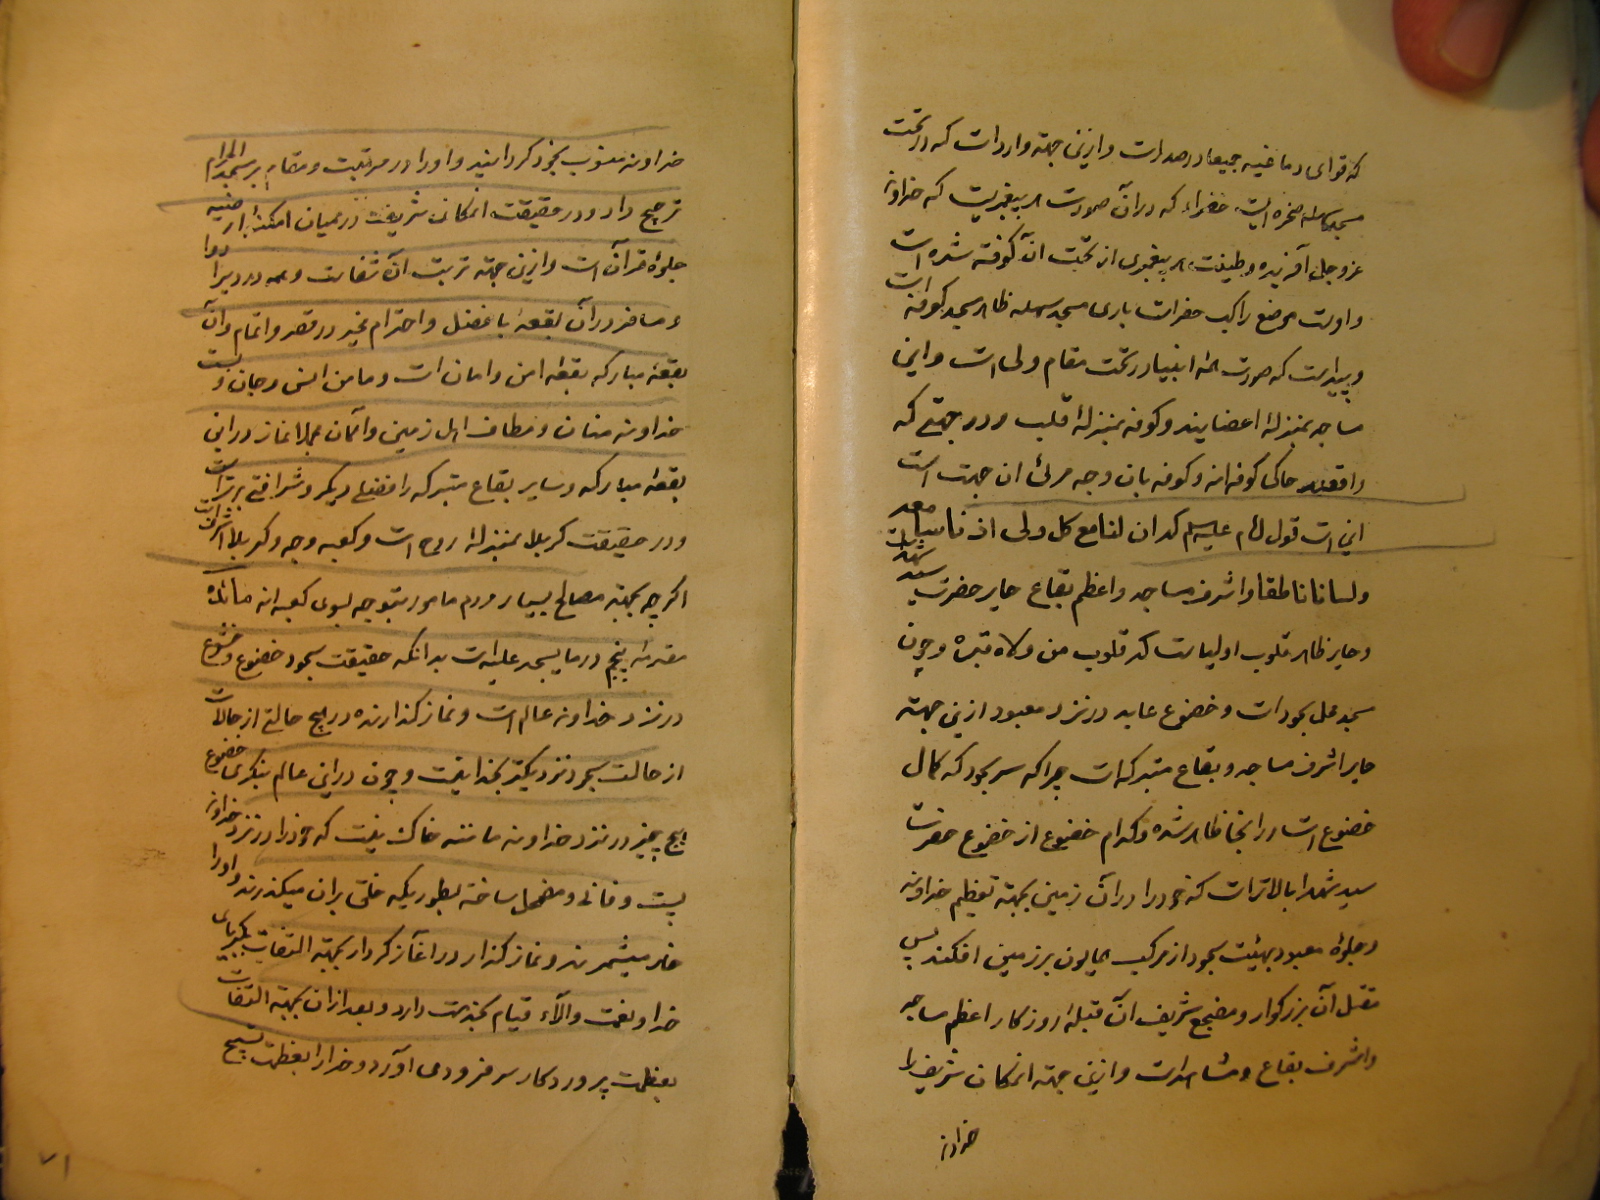 که قوای دماغیه جمیعا در صدر است و ازین جهة وارد است که در تحت
مسجد سهله صخره ایست خضراء که در آن صورت هر پیغمبریست که خداوند
عز و جل آفریده و طینت هر پیغمبری از تحت آن گرفته شده است
و اوست موضع راکب حضرات باری مسجد سهله ظاهر مسجد کوفه است
و پیداست که صورت همه انبیا در تحت مقام ولی است و این
مساجد بمنزلهٔ اعضایند و کوفه بمنزلهٔ قلب و در جهتی که
واقعند حاکی کوفه‌اند و کوفه بان وجه مرئی ان جهت است
این است قول امام علیه السلام که ان لنا مع کل ولی اذنا سامعه
ولسانا ناطقا و اشرف مساجد و اعظم بقاع حایر حضرت سید شهدا است
و حایر ظاهر قلوب اولیاست که قلوب من والاه قبره و چون
مسجد محل سجود است و خضوع عابد در نزد معبود ازین جهة
حایر اشرف مساجد و بقاع متبرکه است چرا که سر سجود که کمال
خضوع است در اینجا ظاهر شده و کدام خضوع از خضوع حضرت
سید شهدا بالاتر است که خود را در آن زمین بجهة تعظیم خداوند
و جلوهٔ معبود بهیئت سجود از مرکب همایون بر زمین افکند پس
مقتل آن بزرگوار و مضجع شریف آن قبلهٔ روزگار اعظم مساجد
و اشرف بقاع و مشاهد است و ازین جهة انمکان شریف را
خداوند
خداوند منسوب بخود گردانید و او را در مرتبت و مقام بر مسجد الحرام
ترجیح داد و در حقیقت انمکان شریف در میان امکنهٔ ارضیه
جلوهٔ قرآن است و ازین جهة تربت آن شفا است و همه دردیرا دوا
و مسافر در آن بقعهٔ با فضل و احترام مخیر در قصر و اتمام و آن
بقعهٔ مبارکه بقعهٔ امن و امان است و مامن انس و جان و بیت
خداوند منان و مطاف اهل زمین و آسمان مجملا نماز در این
بقعهٔ مبارکه و سایر بقاع متبرکه را فضلی دیگر و شرافتی برتر است
و در حقیقت کربلا بمنزلهٔ روح است و کعبه وجه و کربلا اشرف است
اگر چه بجهة مصالح بسیار مردم مامور بتوجه بسوی کعبه‌اند مائده
مقدمهٔ پنجم در ما یسجد علیه است بدانکه حقیقت سجود خضوع و خشوع
در نزد خداوند عالم است و نماز گذارنده در هیچ حالتی از حالات
از حالت سجود نزدیکتر بخدا نیست و چون در این عالم بنگری خضوع
هیچ چیز در نزد خداوند مانند خاک نیست که خود را در نزد خداوند
پست و فانی و مضمحل ساخته بطوریکه خلق بر ان میگذرند و او را
میشمرند و نماز گذار در اغاز کردار بجهة التفات بکبریای
خدا و نعمت و آلاء قیام بخدمت دارد و بعد از ان بجهة التفات
بعظمت پروردکار سر فرود می آورد و خدا را بعظمت تسبیح
۷۱